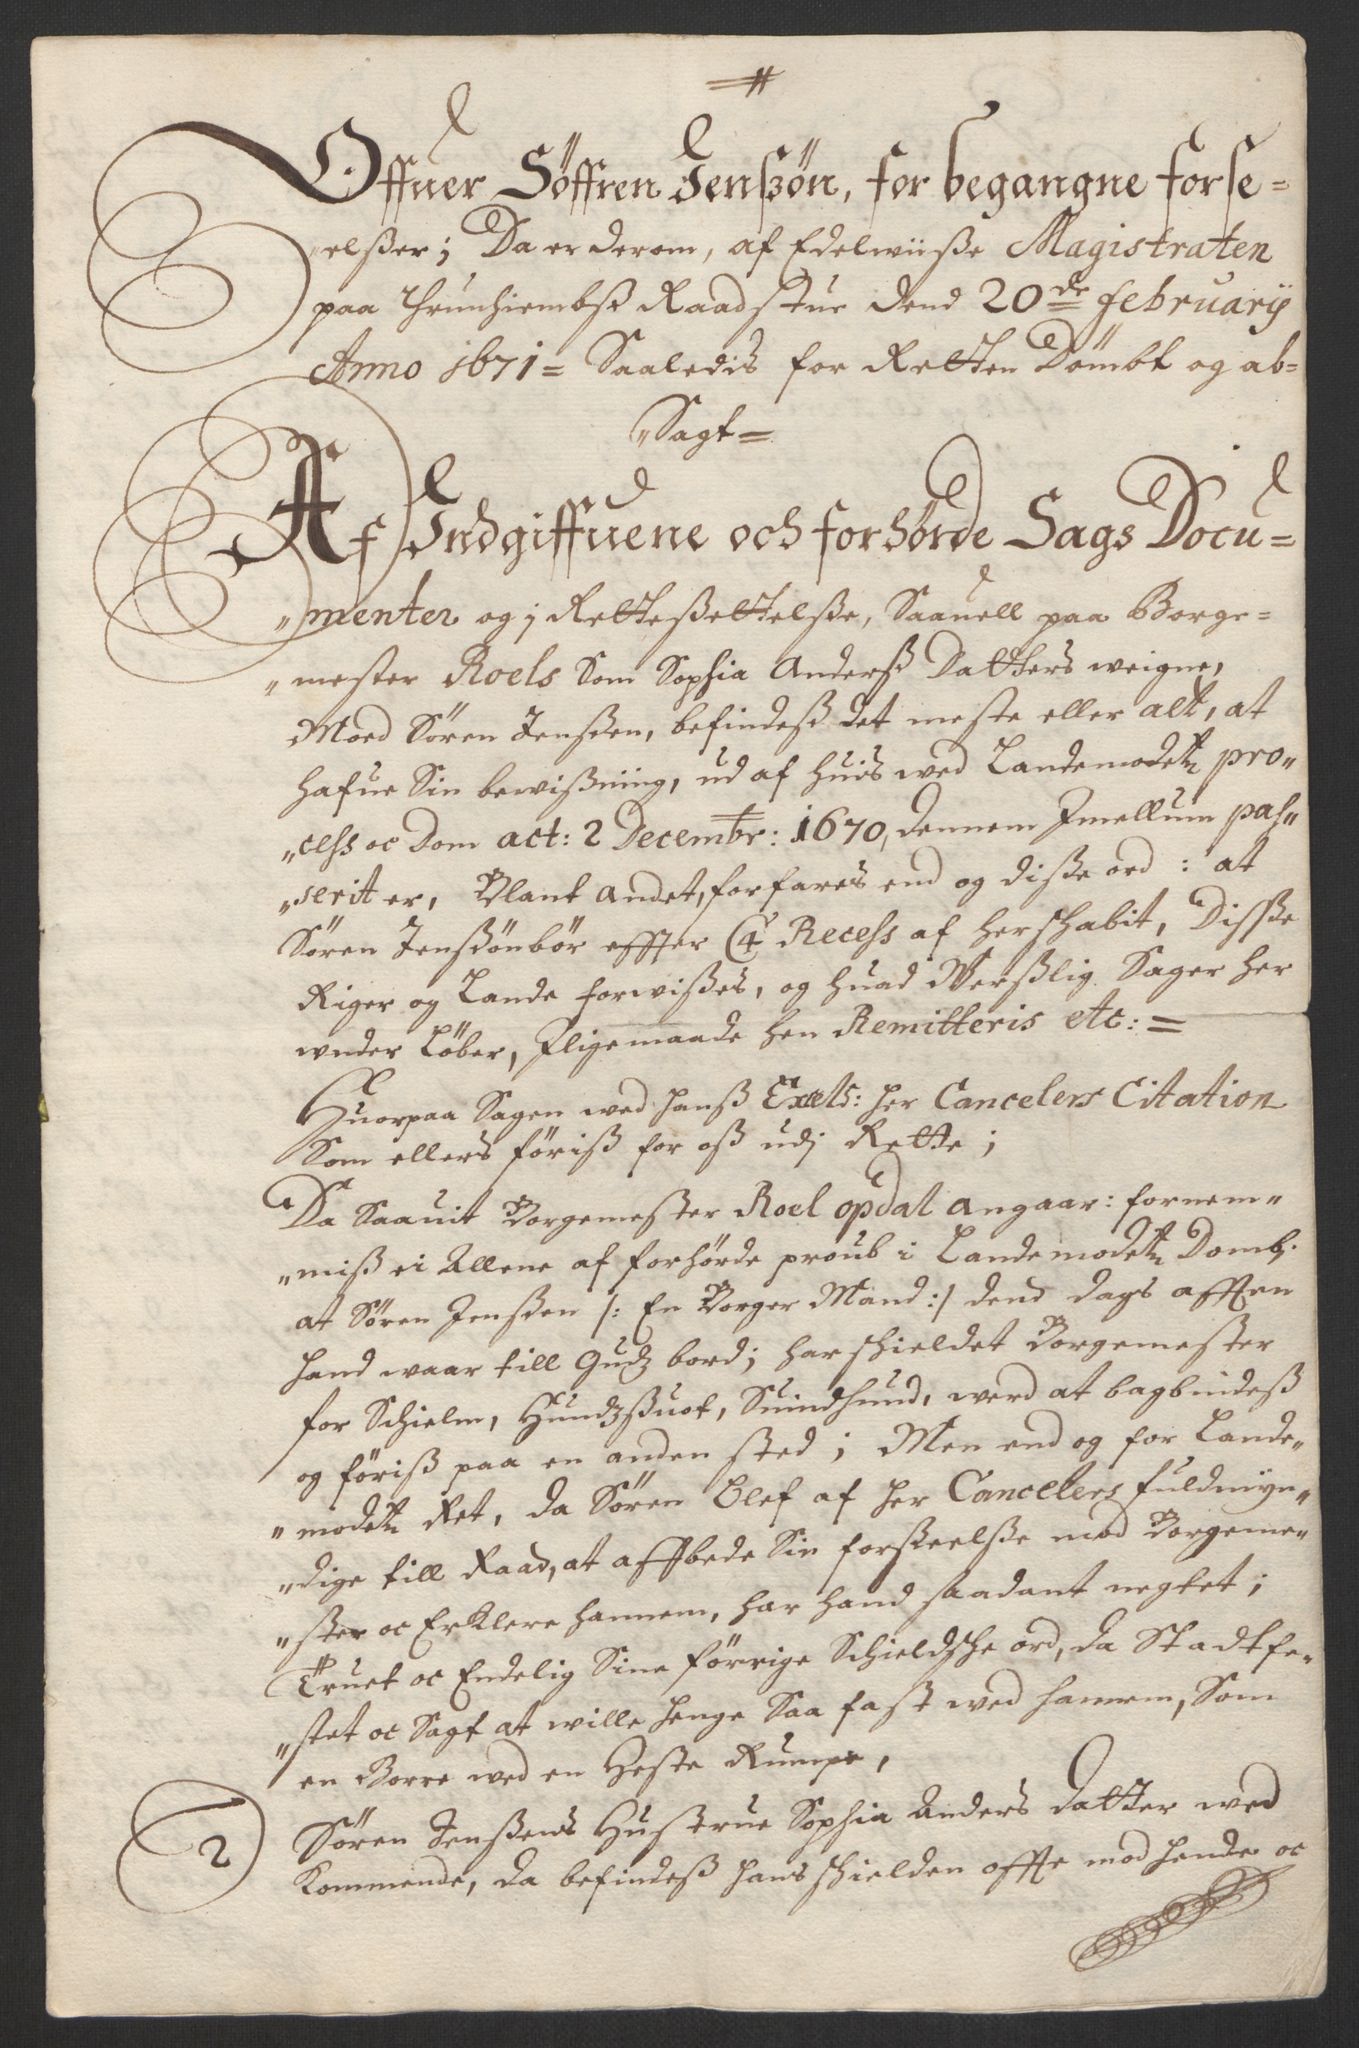 Offuer Söffren Jenszön, for begangne forse=
elszer; Da er derom, af Edelwiisze Magistraten
paa Thrunhiembsz Raadstue dend 20de februarij
Anno 1671= Saaledis for Retten Dömbt og ab=
"Sagt=
Af Indgiffuene och forhörde Sags Docu=
"menter og j Retteszettelsze, Saauell paa Borge=
"mester Roels Som Sophia Andersz Datters weigne,
Moed Sören Jenszen, befindesz det meste eller alt, at
hafue Sin bewiszning, ud af huis wed Landemodetz pro"
"cess oc Dom act: 2 Decembr: 1670, dennem Imellum pas"
"serit er, Blant andet, forfaris end og disze ord : at
Sören Jenszön bör effter C4 Recess af her schabit, Disse
Riger og Lande forwiszes, og huad Werszlig Sager her
under Löber, Jligemaade hen Remitteris etc: =
Huorpaa Sagen wed hansz Excels: her Cancelers Citation
Som ellers förisz for osz udj Rette;
Da Saauit Borgemester Roel opdal angaar: fornem"
"misz ei Allene af forhörde proub i Landemodetz Domb;
at Sören Jenszen /: En Borger Mand :/ dend dags afften
hand waar till Gudz bord; har schieldet Borgemester
for Schielm, Hundzsuot, Suindhund, werd at bagbindesz
og förisz paa en anden sted; Men end og for Lande"
"modetz Ret, da Sören blef af her Cancelers fuldmyn"
"dige till Raad, at affbede Sin forszeelsze mod Borgeme"
"ster oc Erklere hannem, har hand saadant negtet;
Truet oc Endelig Sine förrige Schieldsche ord, da Stadtfe"
"stet oc Sagt at wille henge Saa fast wed hannem, Som
en Borre wed en Heste Rumpe,
Sören Jenszens Hustrue Sophia Anders datter wed
2
kommende, da befindesz hans schielden offte mod hende oc